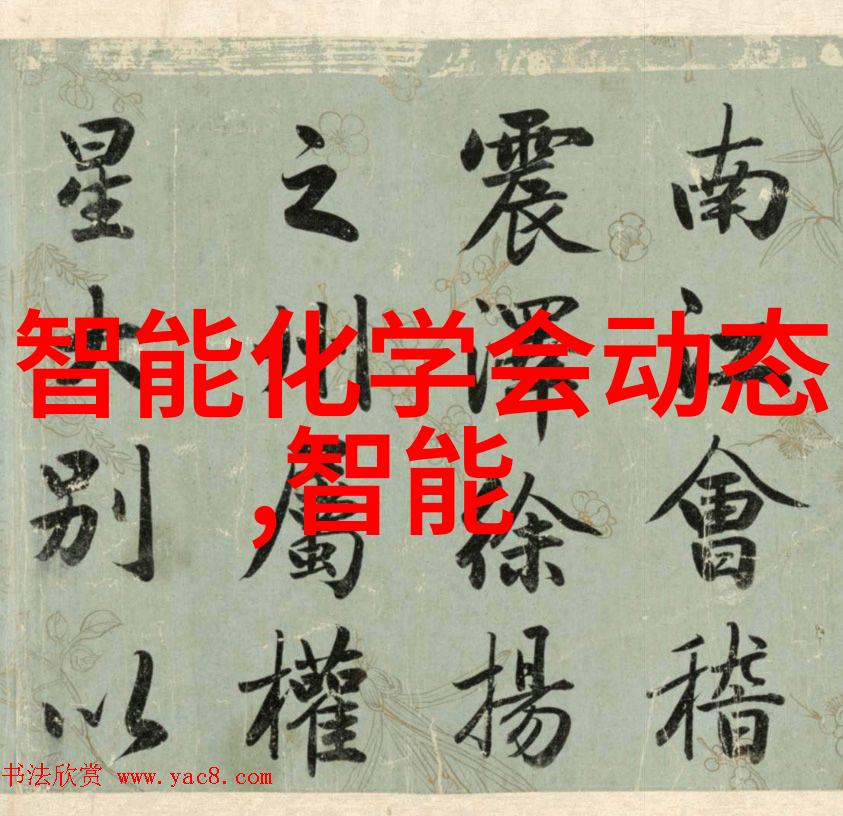 南江會稽
震澤徐揚
之州屬權
星大別以
智能化学会动态
,智能
书法欣赏 www.yac8.com